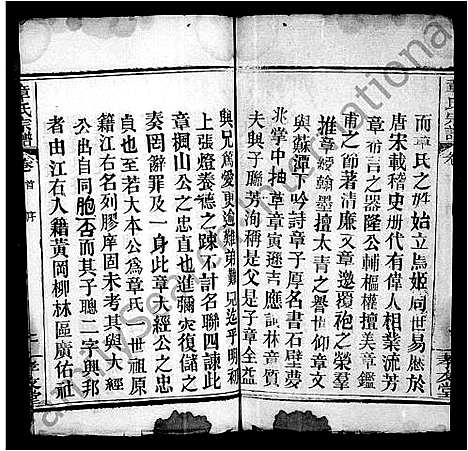 章氏宗譜
而章氏之姓始立焉姬周世易歷於
唐宋載稽史册代有偉人相業流芳
章布言之器隆公輔樞權擅美章鑑
甫之節著清廉又章邈獨袍之榮羣
推章經翰墨擅太青之譽世仰章
與蘇潭下吟詩章子厚名書石壁夢
兆掌中抽草章寅遜言應詞林音質
夫與子聯芳洵稱是父是子章全益
與兄篤愛更逾難弟難兄迄乎明初
上張燈養德之踈不計名聯四諫此
章楓山公之忠直也進彌灾復儲之
奏罔辭罪及一身此章大經公之忠
貞也至若大本公為章氏一世祖原
籍江右名列膠庠固未考其與大經
公出自同胞否而其子聰二字興邦
者由江右入籍黃岡柳林區廣佑社
章氏宗譜
卷首 序